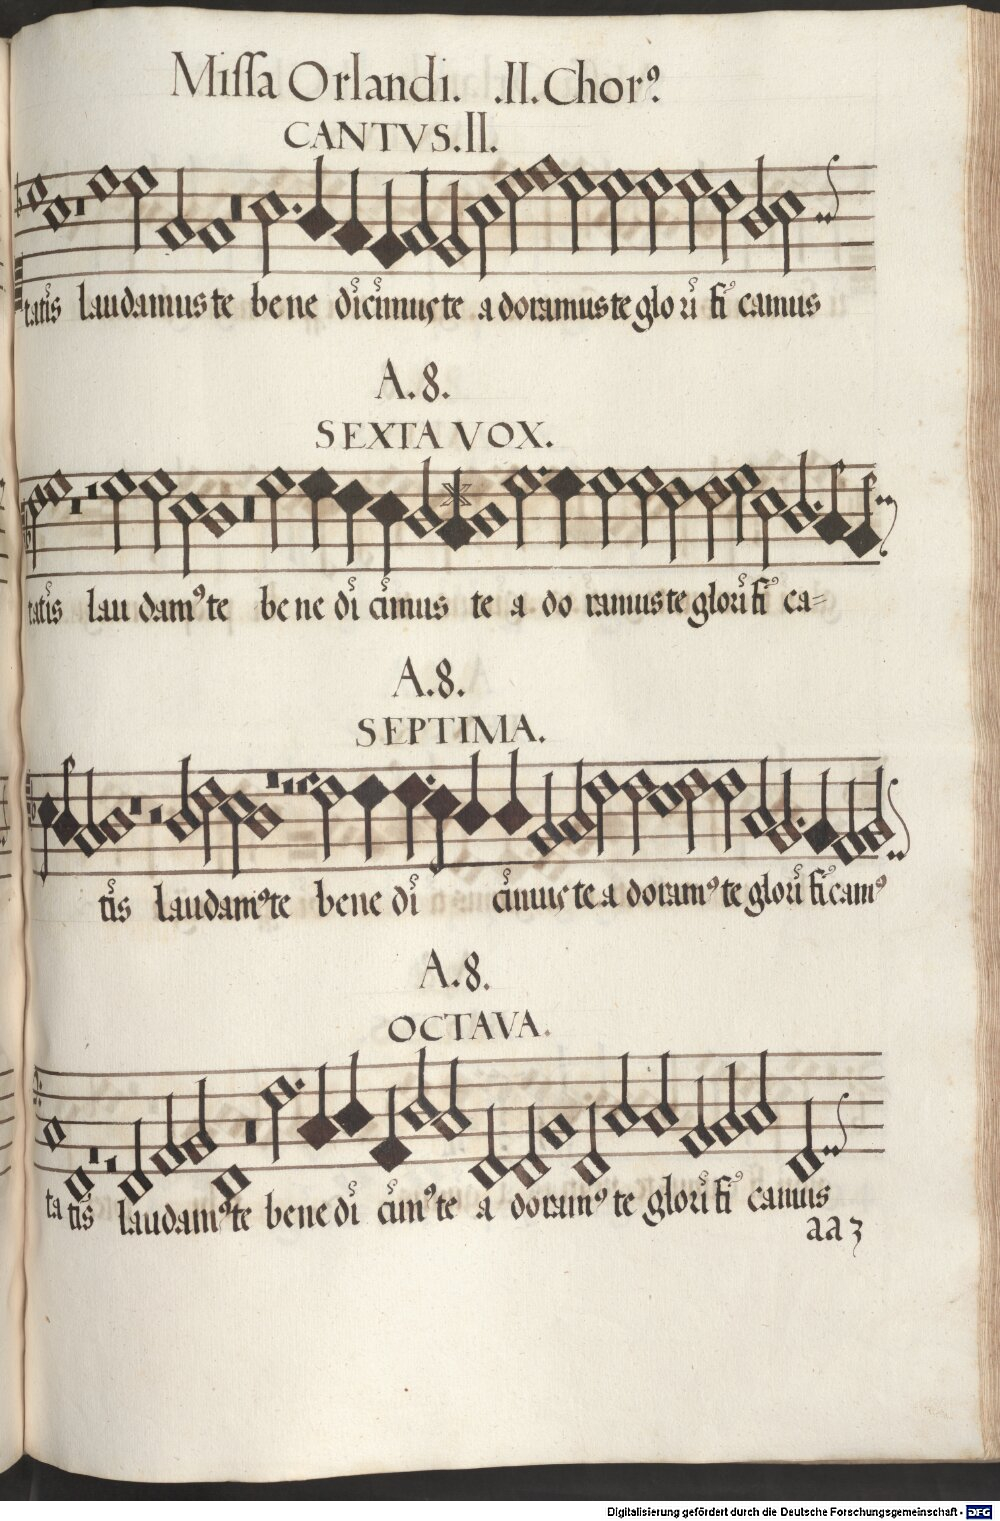 Missa Orlandi. .II. Chorꝰ
CANTVS. II.
tatis laudamus te bene dicimus te adoramus te glorifi camus
A. 8.
SEXTA VOX.
tatis lau damꝰ te bene di cimus te a do ramus te glorifi ca=
A. 8.
SEPTIMA.
tis laudamꝰ te bene di cimus te a doramꝰ te glorificamꝰ
A. 8.
OCTAVA.
ta tis laudamꝰ te bene di cimꝰ te a doramꝰ te glorifi camus
aa 3
Digitalisierung gefördert durch die Deutsche Forschungsgemeinschaft - DFG